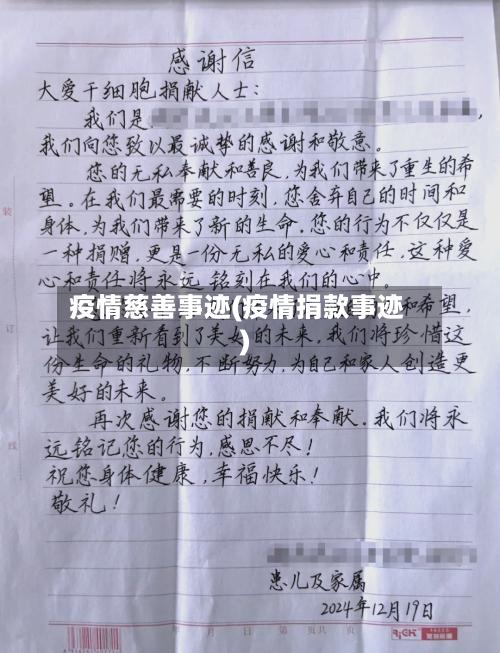 感谢信
大爱干细胞捐献人士：
我们是
我们向您致以最诚挚的感谢和敬意。
您的无私奉献和善良，为我们带来了重生的希
望。在我们最需要的时刻，您舍弃自己的时间和
身体，为我们带来了新的生命，您的行为不仅仅是
一种捐赠，更是一份无私的爱心和责任，这种爱
心和责任将永远铭刻在我们的心中。
和希望，
疫情慈善事迹(疫情捐款事迹
)
让我们重新看到了美好的未来，我们将珍惜这
份生命的礼物，不断努力，为自己和家人创造更
美好的未来。
再次感谢您的捐献和奉献，我们将永
远铭记您的行为，感恩不尽！
祝您身体健康，幸福快乐！
敬礼！
患儿及家属
2024年12月19日
装
订
线
年 月 日 第 页共 页